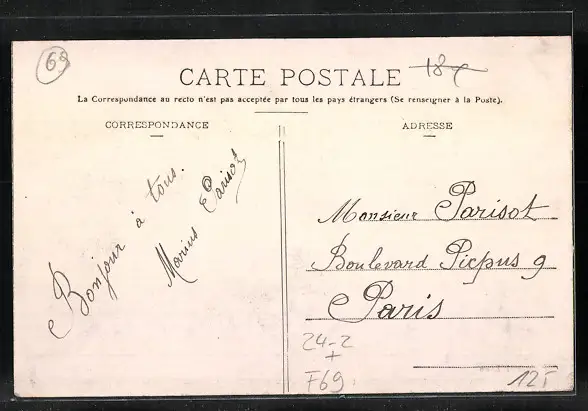 63
CARTE POSTALE
187
La Correspondance au recto n'est pas acceptée par tous les pays étrangers (Se renseigner à la Poste).
CORRESPONDANCE
Bonjour à tous.
Marius Parisot
ADRESSE
Monsieur Parisot
Boulevard Picpus 9
Paris
24-2
+
F69
12F